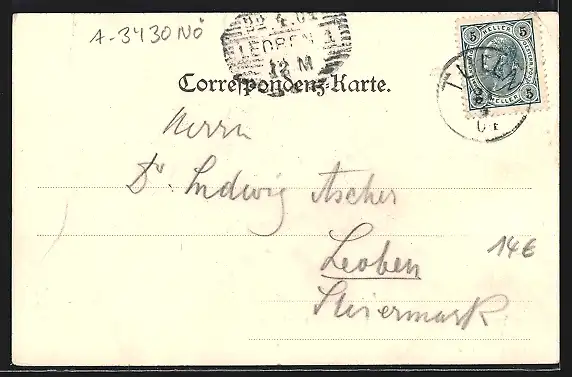 A-3430 NÖ
LEOBEN 1
12 M
5 5
HELLER HELLER
5 5
TULLN
01
Correspondenz-Karte.
Herrn
Dr. Ludwig Ascher
Leoben
14€
Steiermark